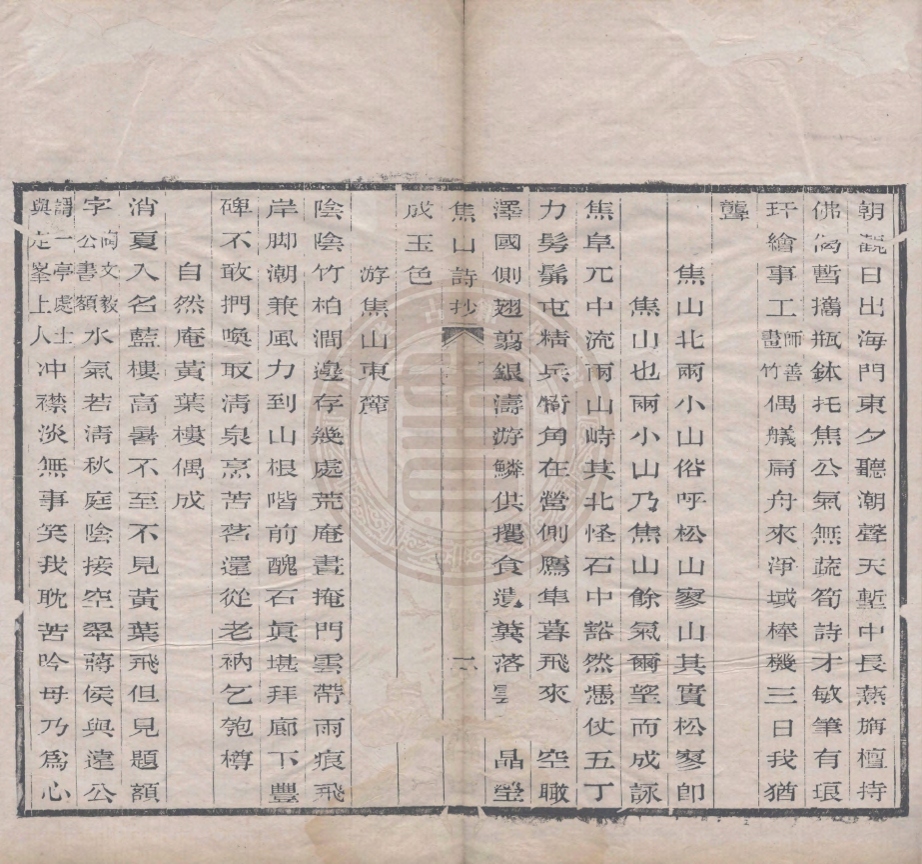 朝觀日出海門東夕聽潮聲天塹中長燕旃檀持
佛偈暫攜瓶鉢托焦公氣無蔬筍詩才敏筆有琅
玕繪事工師善畫竹偶艤扁舟來淨域棒機三日我猶
聾
焦山北兩小山俗呼松山寥山其實松寥卽
焦山也兩小山乃焦山餘氣爾望而成詠
焦阜兀中流兩山峙其北怪石中豁然憑仗五丁
力髣髴屯精兵犄角在營側鷹隼暮飛來空瞰
澤國側翅翦銀濤游鱗供攫食遺糞落雲晶瑩
焦山詩抄
二
成玉色
游焦山東麓
陰陰竹柏澗邊存幾處荒庵晝掩門雲帶雨痕飛
岸脚潮兼風力到山根階前醜石眞堪拜廊下豐
碑不敢捫喚取清泉烹苦茗還從老衲乞匏樽
自然庵黃葉樓偶成
消夏入名藍樓高暑不至不見黃葉飛但見題額
字陶文敏公書額水氣若清秋庭陰接空翠蔣侯與遠公
謂一亭處士與定峯上人冲襟淡無事笑我耽苦吟毋乃爲心